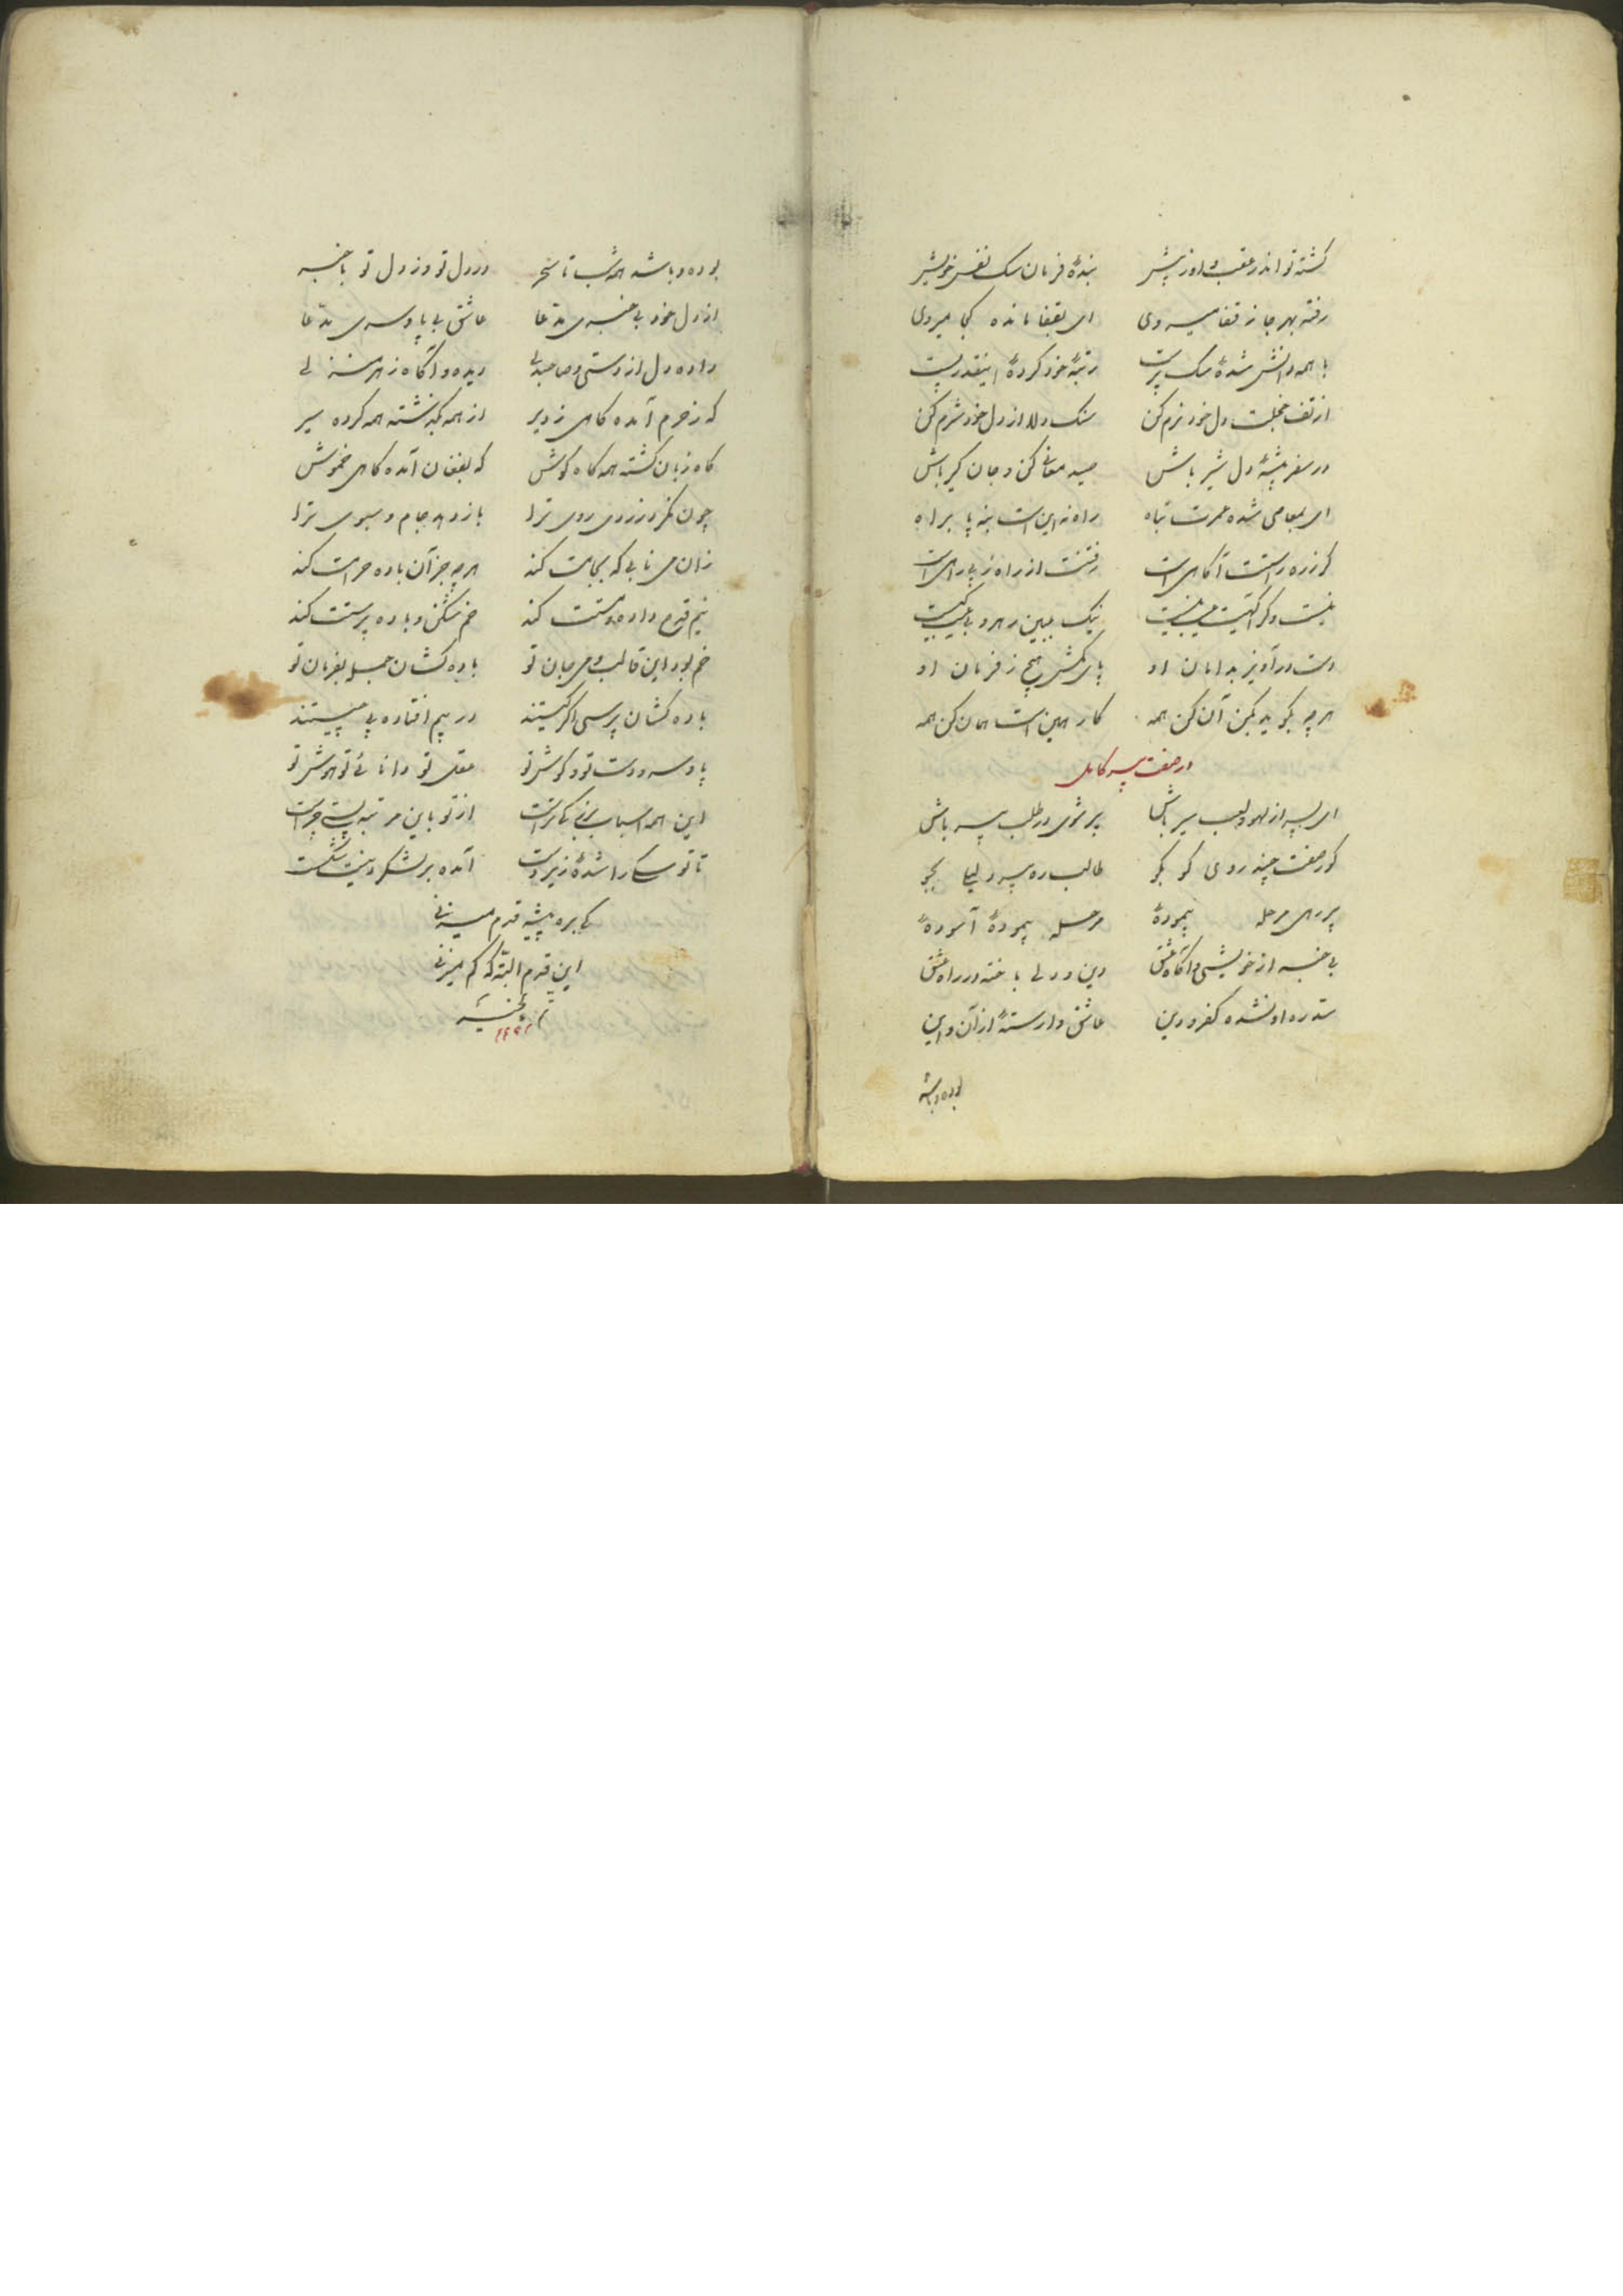 کشته تو اندر عقب و او ز پیش بندهٔ فرمان سک نفس خویش
رفته بهر جا ز قفا میروی ای بقفا مانده کجا میروی
با همه دانش شدهٔ سک پرست رتبهٔ خود کردهٔ اینقدر پست
از تف خجلت دل خود نرم کن سنک دلا از دل خود شرم کن
در سفر بیشهٔ دل شیر باش صید معانی کن و جان کیر باش
ای بمعاصی شده عمرت تباه راه نه این است بنه پا براه
کر ز ره راستت آکاهی است رفتنت از راه ز بی راهی است
نیک ببین رهرو
دست درآویز بدامان او پای مکش هیچ ز فرمان او
هرچه بکوید بکن آن کن همه کار همین است همان کن همه
در صفت پیر کامل
ای پسر از لهو و لعب سیر باش پیر شوی در طلب پیر باش
کور صفت چند روی کو بکو طالب ره پیر دلیلی بجو
پیر رهی مرحله پیمودهٔ مرحله پیمودهٔ آسودهٔ
بی خبر از خویشی و آکاه عشق دین و دلی باخته در راه عشق
سد ره او نشده کفر و دین عاشق وارستهٔ از آن و این
بوده و باشد
بوده و باشد همه شب تا سحر در دل تو وز دل تو با خبر
از دل خود بی خبری مدعا عاشق بی پا و سری مدعا
داده دل از دستی و صاحبدلی دیده و آکاه ز هر منزلی
که ز حرم آمده کاهی ز دیر از همه بکذشته همه کرده سیر
کاه زبان کشته همه کاه کوش که بفغان آمده کاهی خموش
چون نکرد زردی روی ترا باز دهد جام و سبوی ترا
زان می نابی که بجامت کند هرچه جز آن باده حرامت کند
نیم قدح داده و مستت کند خم شکن و باده پرستت کند
خم بود این قالب و می جان تو باده کشان جمله بفرمان تو
باده کشان پرسی اکر کیستند در پیم افتاده پی چیستند
پا و سر و دست تو و کوش تو عقل تو دانائی تو هوش تو
این همه اسباب بزیر از تو باین مرتبه پستی چراست
تا تو سکی را شدهٔ زیر دست آمده بر لشکر دینت شکست
کی بره بیشه قدم میزنی
این قدم البته که کم میزنی
تم بالخیر